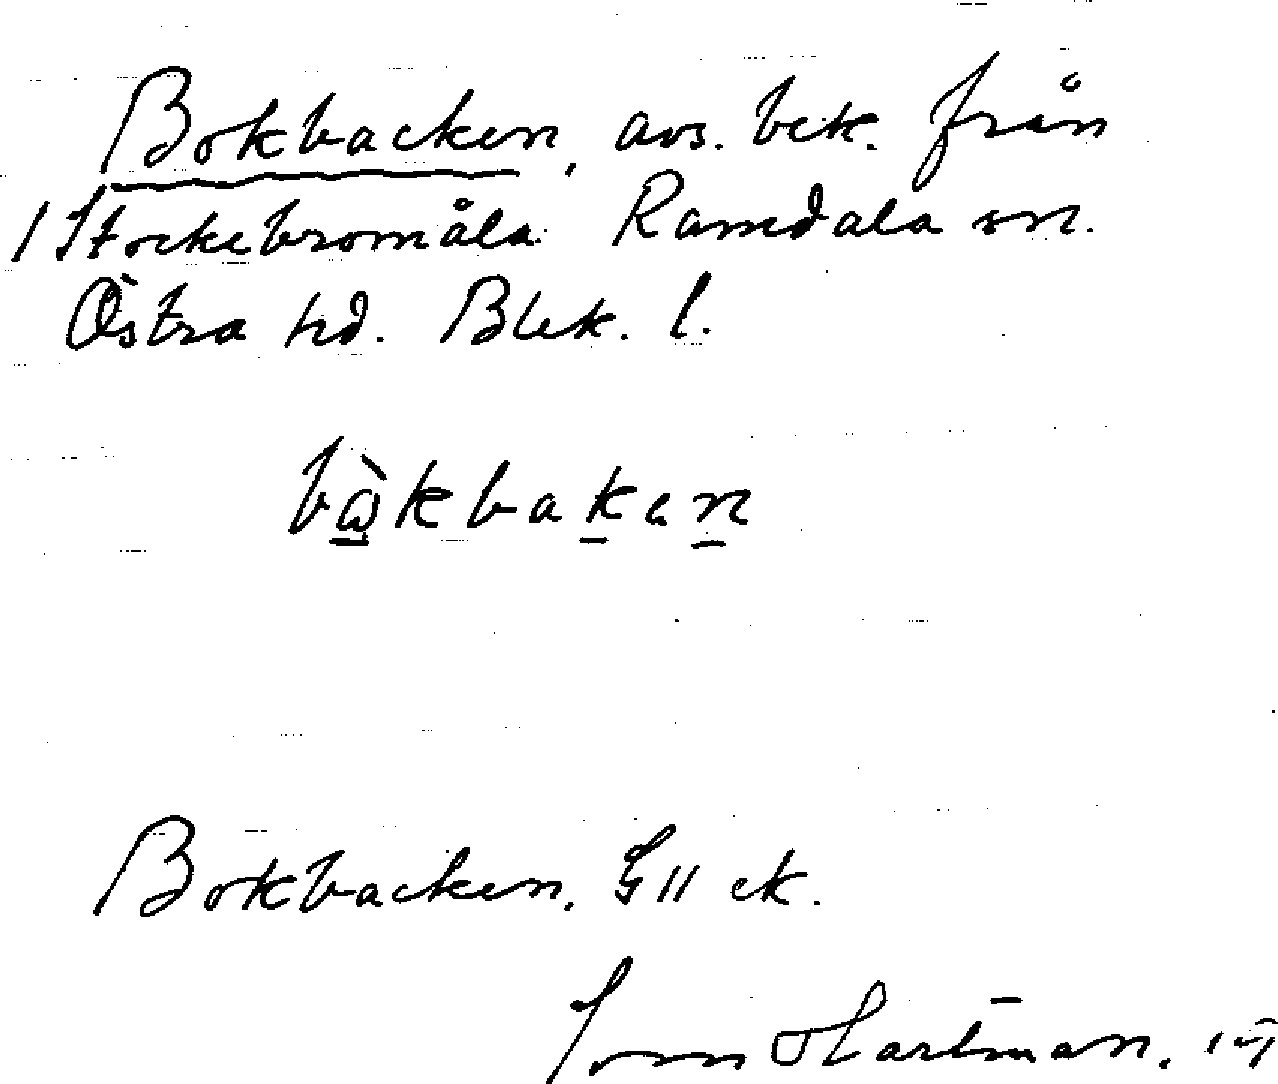 Bokbacken, avs. bek. från
/ Stockebromåla Ramdala sn.
Östra hd. Blek. l.
bàkbaken
Bokbacken. G11 ek.
Hartman.